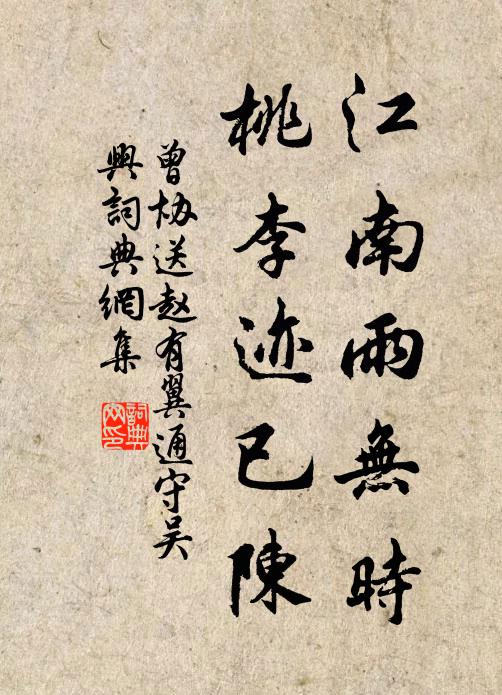 江南雨無時
桃李迹已陳
曾协送赵有翼通守吴
興詞典網集
詞典
网印